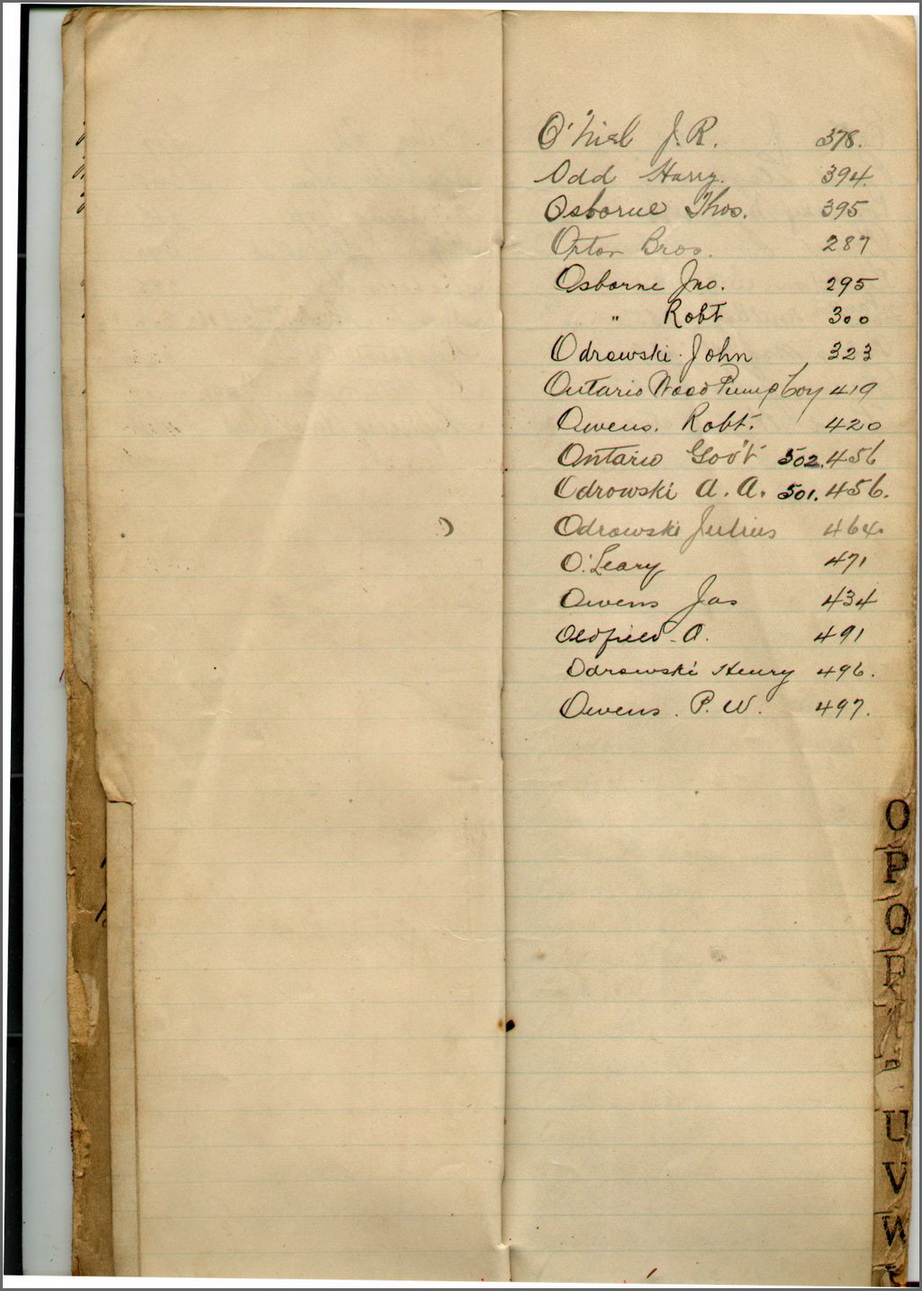 O'Niel J. R. 378.
Odd Harry. 394.
Osborne Thos. 395
Opton Bros. 287
Osborne Jno. 295
" Robt 300
Odrowski John 323
Ontario Wood Pump Coy 419
Owens. Robt. 420
Ontario Gov't 502. 456
Odrowski A. A. 501. 456.
Odrowski Julius 464.
O'Leary 471
Owens Jas 434
Oldfield. A. 491
Odrowski Henry 496.
Owens. P. W. 497.
O
P
Q
R
U
V
W